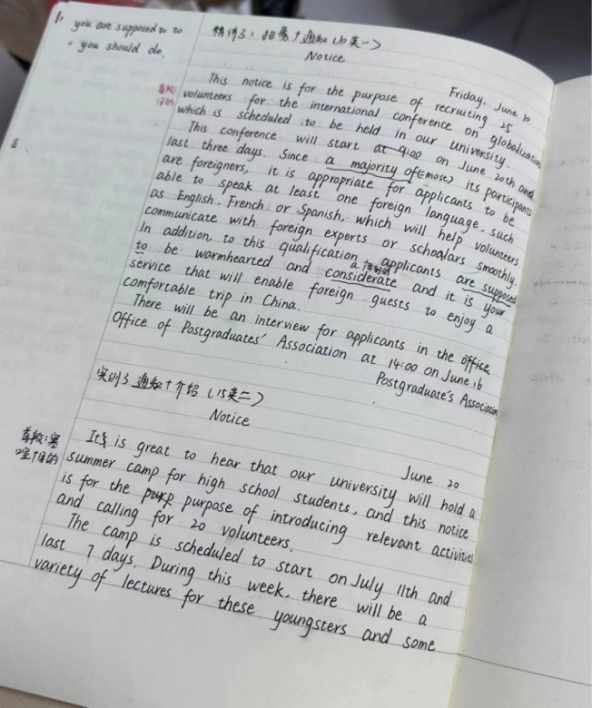 1. you are supposed to to
you should do.
精训3：招募+通知（10英一）
Notice
Friday, June 10
This notice is for the purpose of recruiting 25
volunteers for the international conference on globalization
which is scheduled to be held in our university.
This conference will start at 9:00 on June 20th and
last three days. Since a majority of(most) its participants
are foreigners, it is appropriate for applicants to be
able to speak at least one foreign language, such
as English, French or Spanish, which will help volunteers
communicate with foreign experts or schoalars smoothly.
In addition to this qualification, applicants are supposed
to be warmhearted and considerate and it is your
service that will enable foreign guests to enjoy a
comfortable trip in China.
There will be an interview for applicants in the office
Office of Postgraduates' Association at 14:00 on June 16
Postgraduate's Association
实训3 通知+介绍（15英二）
Notice
June 20
首段：寒
暄+目的
It is great to hear that our university will hold a
summer camp for high school students, and this notice
is for the purp purpose of introducing relevant activities
and calling for 20 volunteers.
The camp is scheduled to start on July 11th and
last 7 days. During this week, there will be a
variety of lectures for these youngsters and some